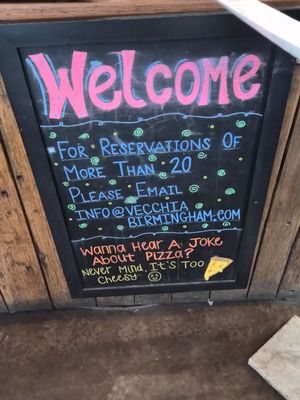 Welcome
For Reservations Of
More Than 20
Please Email
info@vecchia
birmingham.com
Wanna Hear A Joke
About Pizza?
Never Mind, It's Too
Cheesy